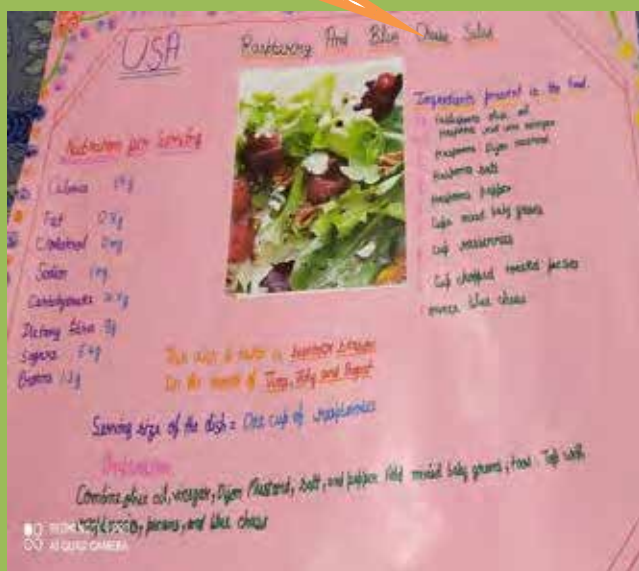 USA
Raspberry And Blue Cheese Salad
Nutrition per Serving
Calories
Fat
Cholesterol 0mg
Sodium 1mg
Carbohydrate
Dietary fibre 8g
Sugars 5.4g
Protein 1.5g
Ingredients present in the food.
olive oil
red wine vinegar
Dijon mustard
salt
pepper
Cups mixed baby greens
Cup raspberries
Cup chopped toasted pecans
ounce blue cheese
This dish is eaten in summer season
In the month of June, July and August
Serving size of the dish = One cup of raspberries
Combine olive oil, vinegar, Dijon Mustard, salt, and pepper. Add mixed baby greens, toss. Top with
pecans, and blue cheese
AI QUAD CAMERA